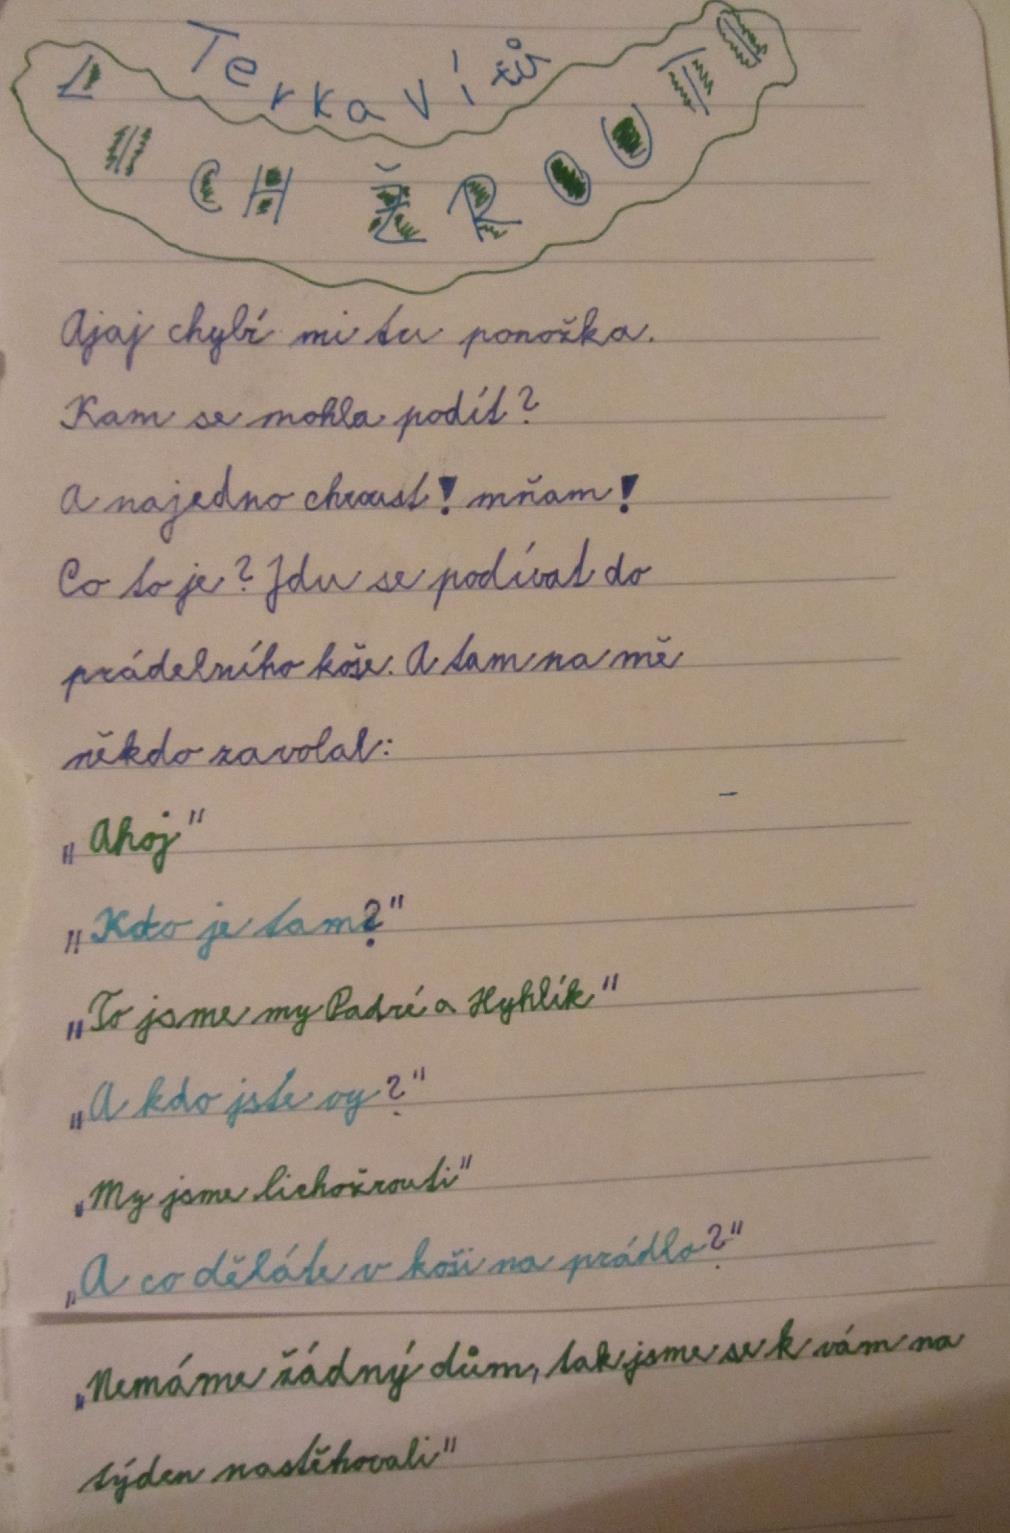 Terka Vítů
LICHŽROUTI
Ajaj chybí mi tu ponožka.
Kam se mohla podít?
A najedno chroust! mňam!
Co to je? Jdu se podívat do
prádelního koše. A tam na mě
někdo zavolal:
„Ahoj"
„Kdo je tam?"
„To jsme my Padré a Hyhlík"
„A kdo jste vy?"
„My jsme lichožrouti"
„A co děláte v koši na prádlo?"
„Nemáme žádný dům, tak jsme se k vám na
týden nastěhovali"